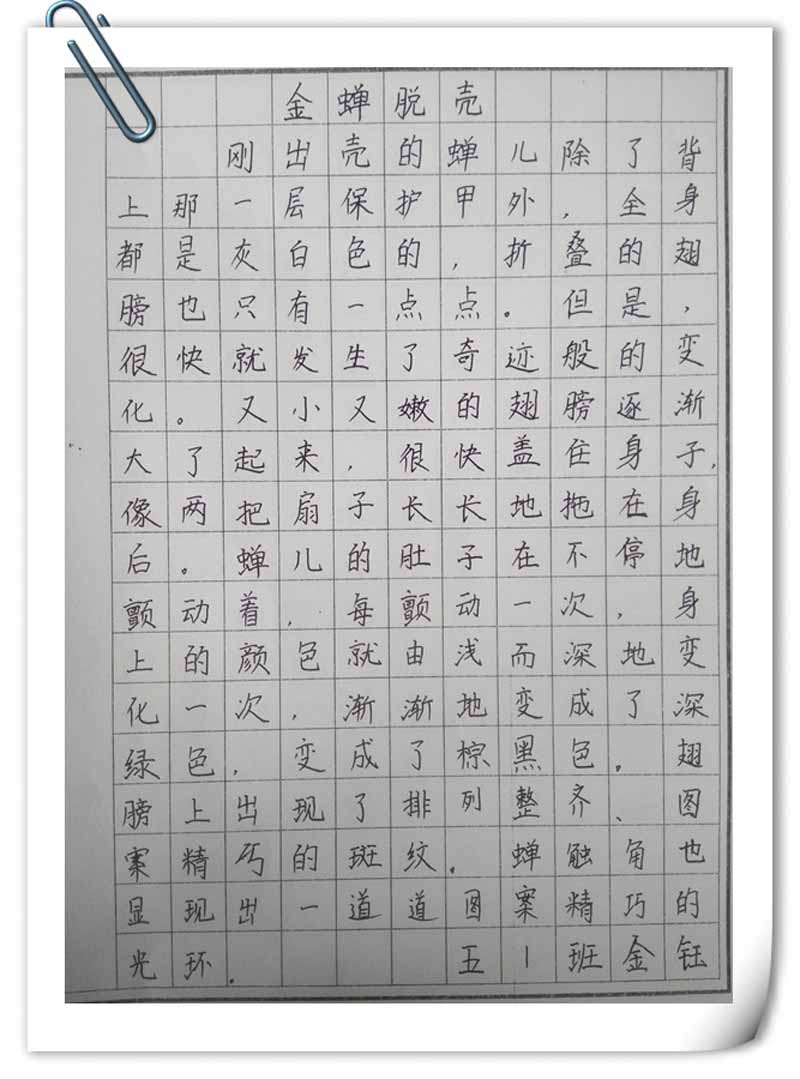 金蝉脱壳
刚出壳的蝉儿除了背
上那一层保护甲外，全身
都是灰白色的，折叠的翅
膀也只有一点点。但是，
很快就发生了奇迹般的变
化。又小又嫩的翅膀逐渐
大了起来，很快盖住身子，
像两把扇子长长地拖在身
后。蝉儿的肚子在不停地
颤动着，每颤动一次，身
上的颜色就由浅而深地变
化一次，渐渐地变成了深
绿色，变成了棕黑色。翅
膀上出现了排列整齐、图
案精巧的斑纹。蝉触角也
显现出一道道图案精巧的
光环。 五1班金钰